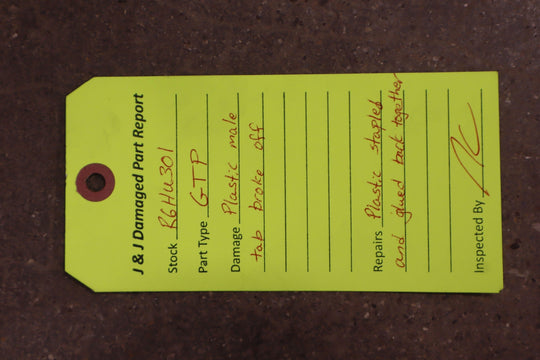 J & J Damaged Part Report
Stock R6HU301
Part Type GTP
Damage Plastic male
tab broke off
Repairs Plastic stapled
and glued back together
Inspected By